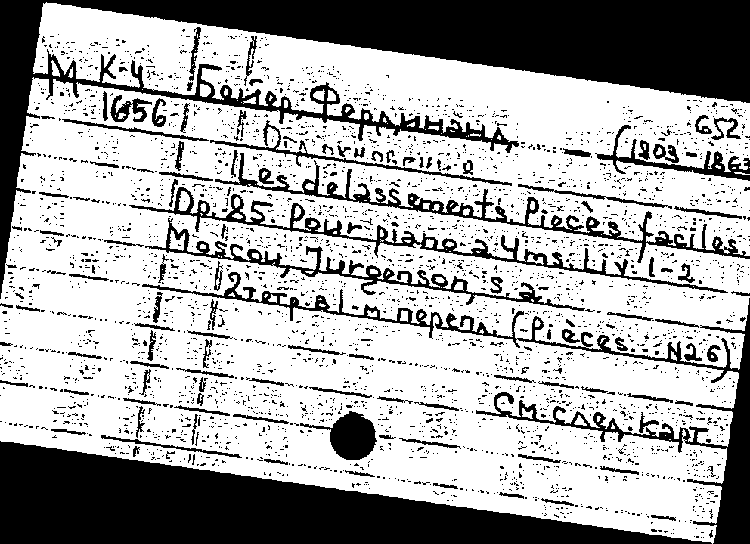 652
М К-4 Бейер, Фердинанд. — (1803-1863
1656
Les délassements. Pièces faciles.
Op. 85. Pour piano à 4 ms. Liv. 1-2.
Moscou, Jurgenson, s.a.
2 тетр. в 1-м перепл. (Pièces... N26)
См. след. карт.